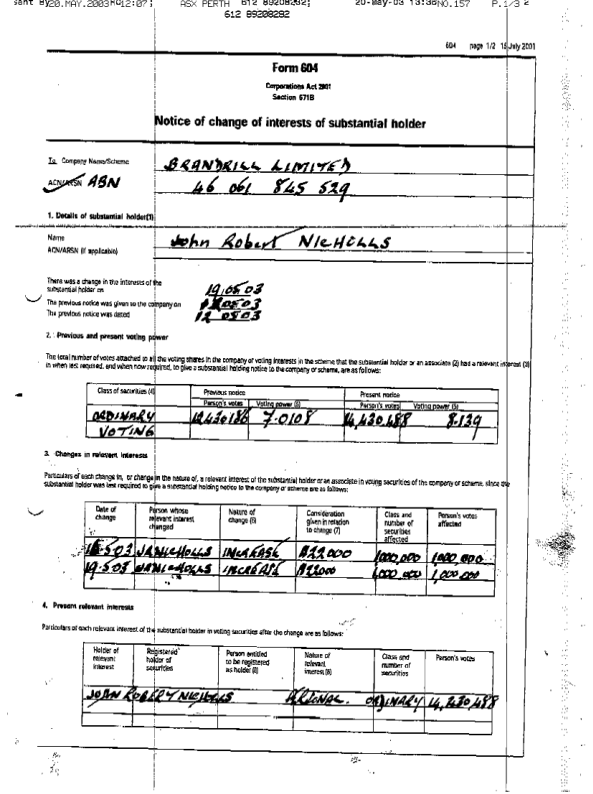 20.MAY.2003 12:07 ASX PERTH 612 89208292 20-May-03 13:38 NO.157 P.1/3
612 89208292
604 page 1/2 15 July 2001
Form 604
Corporations Act 2001
Section 671B
Notice of change of interests of substantial holder
To Company Name/Scheme BRANDRILL LIMITED
ACN/ARSN ABN 46 061 845 529
1. Details of substantial holder(1)
Name John Robert NICHOLLS
ACN/ARSN (if applicable)
There was a change in the interests of the
substantial holder on 19.05.03
The previous notice was given to the company on
The previous notice was dated
2. Previous and present voting power
The total number of votes attached to all the voting shares in the company or voting interests in the scheme that the substantial holder or an associate (2) had a relevant interest (3)
in when last required, and when now required, to give a substantial holding notice to the company or scheme, are as follows:
Class of securities (4) Previous notice Present notice
Person's votes Voting power (5) Person's votes Voting power (5)
ORDINARY 12,430,186 7.0108 14,430,488 8.139
VOTING
3. Changes in relevant interests
Particulars of each change in, or change in the nature of, a relevant interest of the substantial holder or an associate in voting securities of the company or scheme, since the
substantial holder was last required to give a substantial holding notice to the company or scheme are as follows:
Date of change Person whose relevant interest changed Nature of change (6) Consideration given in relation to change (7) Class and number of securities affected Person's votes affected
5.03 JR NICHOLLS INCREASE $22,000 1,000,000 1,000,000
19.5.03 NICHOLLS INCREASE $22000 1,000,000 1,000,000
4. Present relevant interests
Particulars of each relevant interest of the substantial holder in voting securities after the change are as follows:
Holder of relevant interest Registered holder of securities Person entitled to be registered as holder (8) Nature of relevant interest (6) Class and number of securities Person's votes
JOHN ROBERT NICHOLLS PERSONAL. ORDINARY 14,430,488